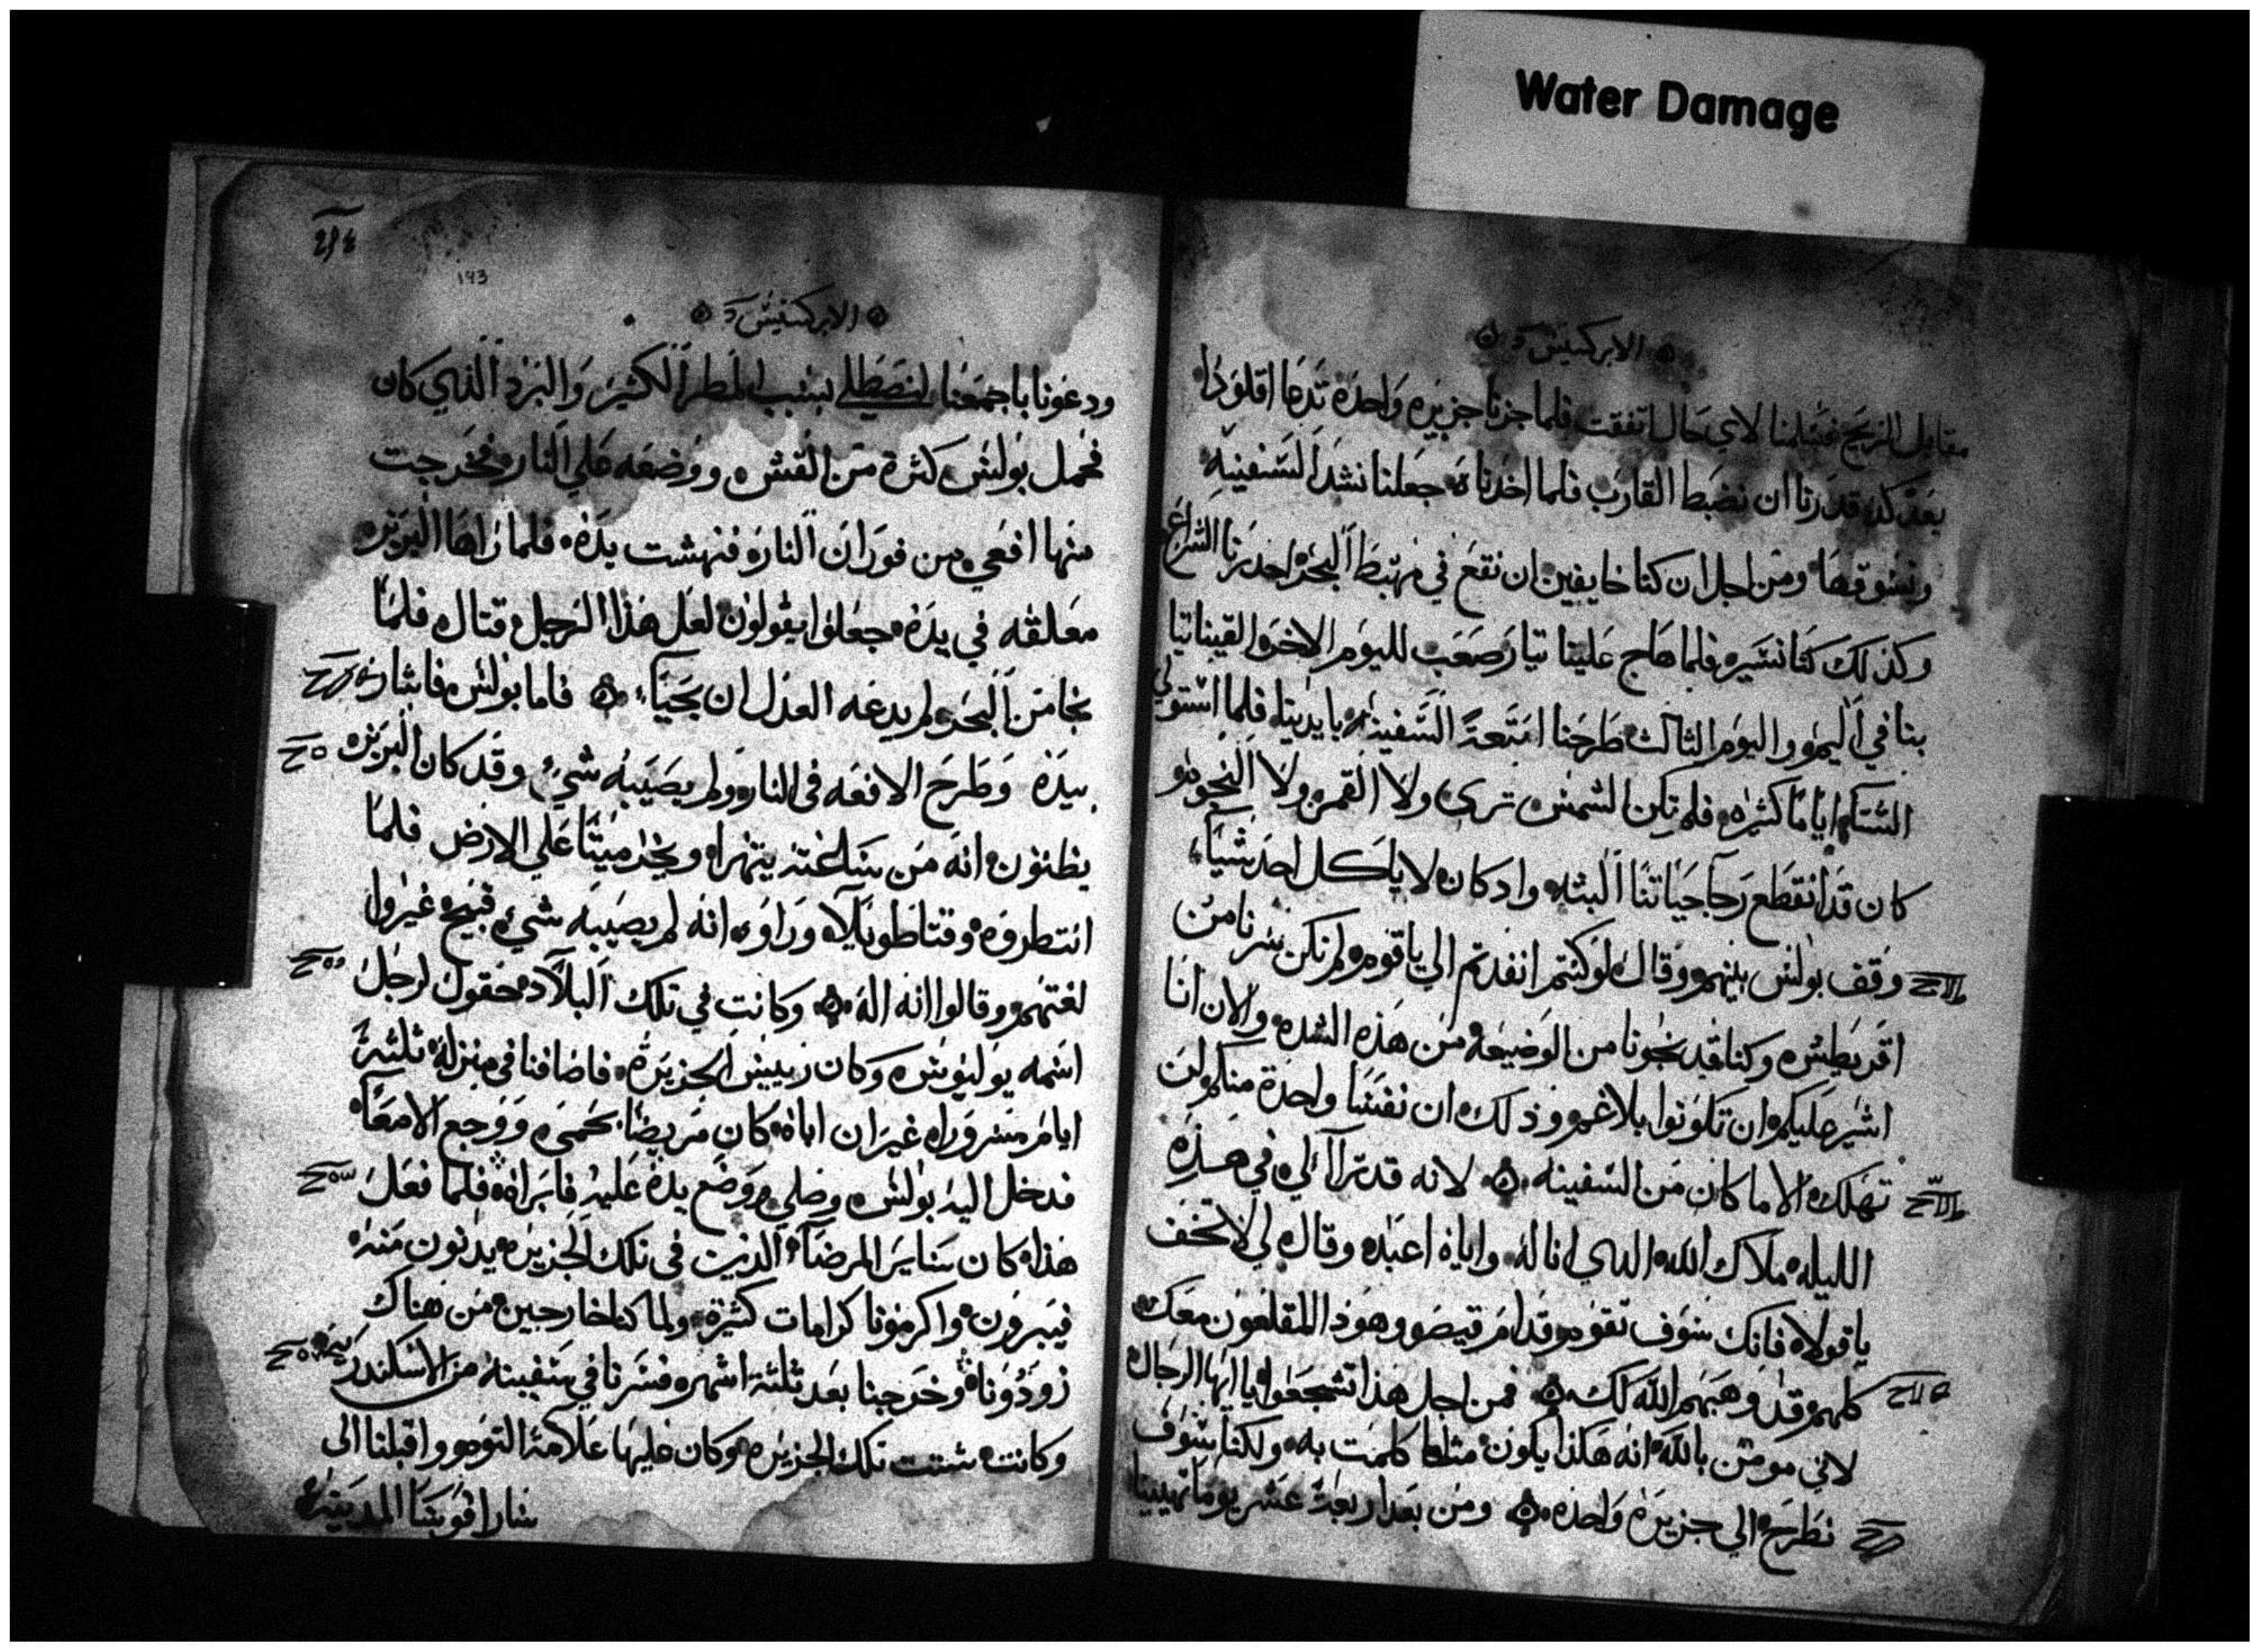 Water Damage
الابركسيس
مقابل الريح فسلمنا لاي حال اتفقت فلما جزنا جزيره واحده تدعا اقلودا
بعد كد قدرنا ان نضبط القارب فلما اخدناه جعلنا نشد السفينه
ونسوقها ومن اجل ان كنا خايفين ان نقع في مهبط البحر احدرنا الشراع
وكذلك كنا نسير فلما هاج علينا تيار صعب لليوم الاخر القينا تيا
بنا في اليم واليوم الثالث طرحنا امتعة السفينه بايدينا فلما استولي
الشتا اياما كثيره فلم تكن الشمس ترى ولا القمر ولا النجوم
كان قد انقطع رجا حياتنا البته واد كان لا ياكل احد شيا
وقف بولس بينهم وقال لو كنتم انفدتم الي ياقوم ولم نكن سرنا من
اقريطش وكنا قد نجونا من الوضيعه من هذه الشده والان انا
اشير عليكم ان تكونوا بلا غم وذلك ان نفسا واحدة منكم لن
تهلك الا ما كان من السفينه لانه قد ترآا لي في هذه
الليله ملاك الله الدي انا له واياه اعبد وقال لي لا تخف
يا فولا فانك سوف تقوم قدام قيصر وهوذا المقلعون معك
كلهم قد وهبهم الله لك فمن اجل هذا تشجعوا يا ايها الرجال
لاني مومن بالله انه هكذا يكون مثلما كلمت به ولكنا سوف
نطرح الي جزيرة واحده ومن بعد اربعة عشر يوما تهيبنا
193
الابركسيس
ودعونا باجمعنا لنصطلي بسبب المطر الكثير والبرد الذي كان
فحمل بولس كثرة من القش ووضعه علي النار فخرجت
منها افعي من فوران النار فنهشت يده فلما راها البربر
معلقه في يده جعلوا يقولون لعل هذا الرجل قتال فلما
نجا من البحر لم يدعه العدل ان يحيا فاما بولس فاشار
بيده وطرح الافعه في النار ولم يصيبه شي وقد كان البربر
يظنون انه من ساعته يتهرا ويخر ميتا علي الارض فلما
انتطروه وقتا طويلا وراوه انه لم يصيبه شي قبيح غيروا
لغتهم وقالوا انه اله وكانت في تلك البلاد حقول لرجل
اسمه يوليوس وكان رييس الجزيرة فاضافنا في منزله ثلثة
ايام مسرورا غير ان اباه كان مريضا بحمي ووجع الامعا
فدخل اليه بولس وصلي ووضع يده عليه فابراه فلما فعل
هذا كان ساير المرضا الذين في تلك الجزيره يدنون منه
فيبرون واكرمونا كرامات كثيرة ولما كنا خارجين من هناك
زودونا وخرجنا بعد ثلثة اشهر فسرنا في سفينة من الاسكندريه
وكانت شتت تلك الجزيره وكان عليها علامة التوم واقبلنا الى
ساراقوسا المدينه